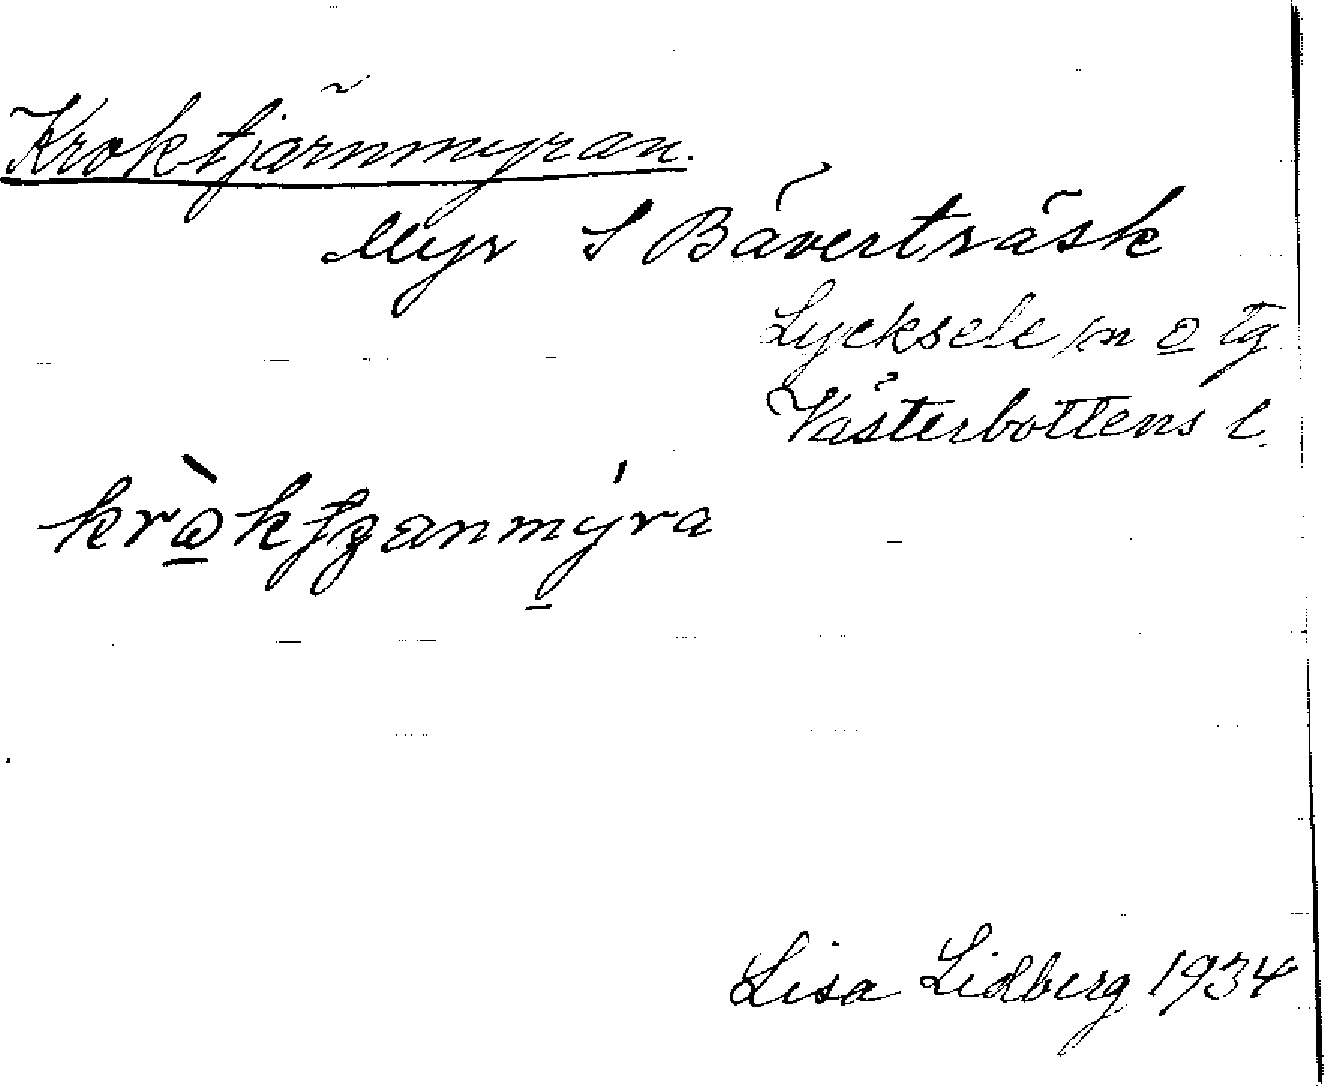 Kroktjärnmyran.
Myr S Bäverträsk
Lycksele sn o tg
Västerbottens l.
krὼktʒanmýra
Lisa Lidberg 1934